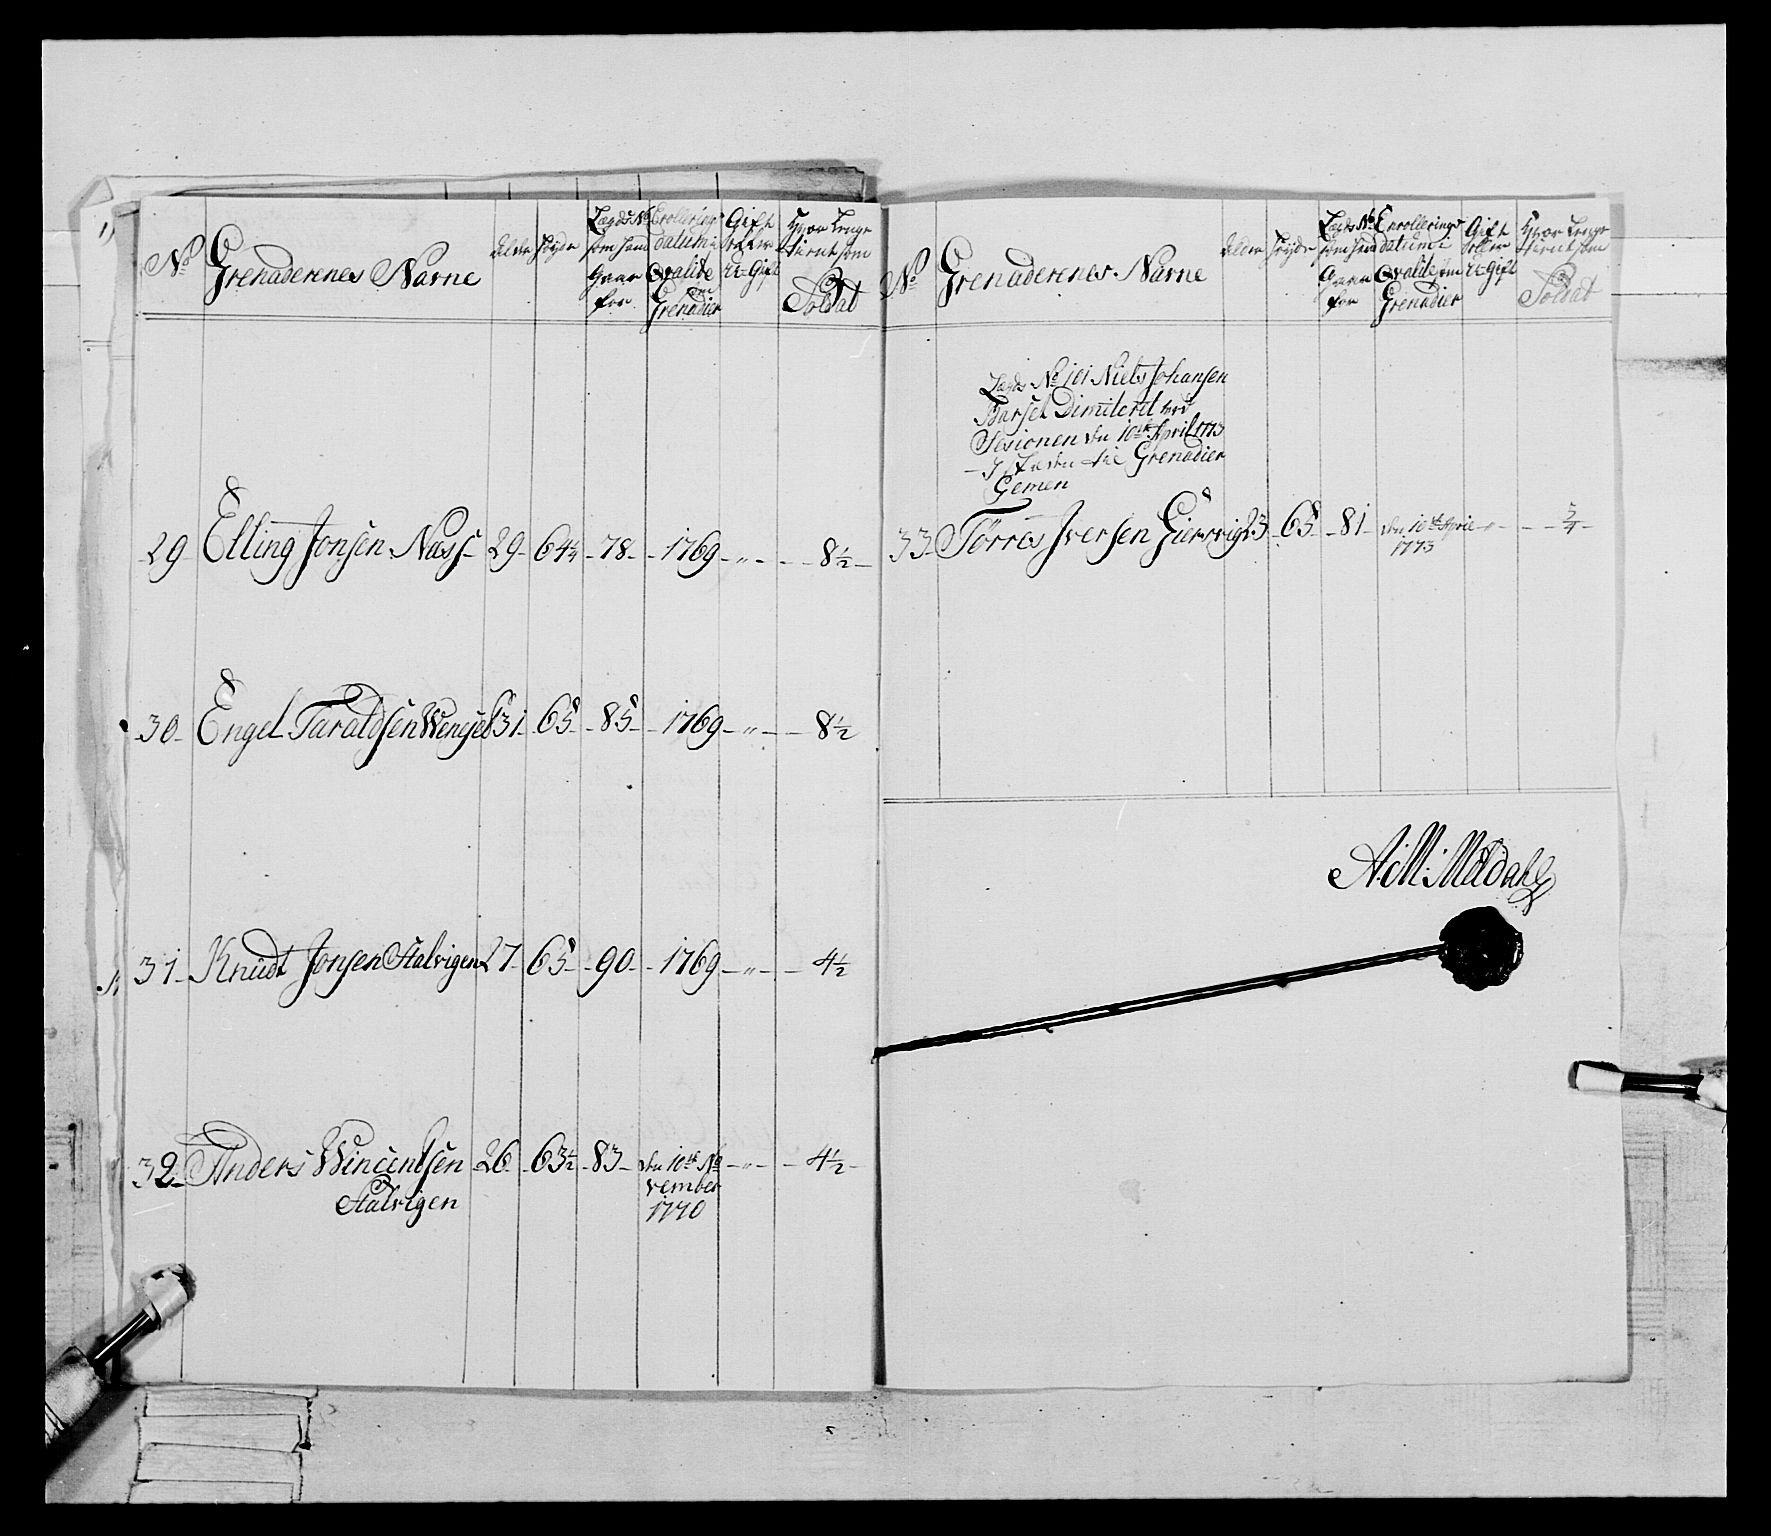 No
Grenaderenes Navne
Alder
Høyde
Lægds No
som hand
Gaar
for
Enrollerings
datum i
Qvalite
som
Grenadier
Gift
eller
U-Gift
Hvor Lenge
tient som
Soldat
29 Elling Jonsen Næss 29 64¼ 78 1769 „ 8½
30 Engel Taraldsen 31 65 85 1769 „ 8½
31 Knudt Jonsen Stalvigen 27 65 90 1769 „ 4½
32 Anders Wincentsen 26 63½ 83 den 10de No „ 4½
Stalvigen vember
1770
No
Grenaderenes Navne
Alder
Høyde
Lægds No
som hand
Gaar
for
Enrollerings
datum i
Qvalite som
Grenadier
Gift
eller
U-Gift
Hvor Lenge
tient som
Soldat
Lægds No 101 Niels Johansen
Barsel Dimiteret ved
Sesionen den 10de April 1773
I Steden til Grenadier
Gemen
33 Törres Iversen 23 65 81 den 10de April „ ¾
1773
A: M: Meldahl